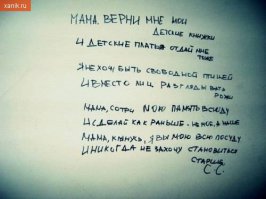 xanik.ru
МАМА, ВЕРНИ МНЕ МОИ
ДЕТСКИЕ КНИЖКИ
И ДЕТСКИЕ ПЛАТЬЯ ОТДАЙ МНЕ
ТОЖЕ
Я НЕ ХОЧУ БЫТЬ СВОБОДНОЙ ПТИЦЕЙ
И ВМЕСТО
РОЖИ
МАМА, СОТРИ МОЮ ПАМЯТЬ ВСЮДУ
И СДЕЛАЙ КАК РАНЬШЕ - НЕ НОС, А
МАМА, КЛЯНУСЬ, Я ВЫМОЮ ВСЮ ПОСУДУ
И НИКОГДА НЕ ЗАХОЧУ СТАНОВИТЬСЯ
СТАРШЕ
С.С.
xanik.ru